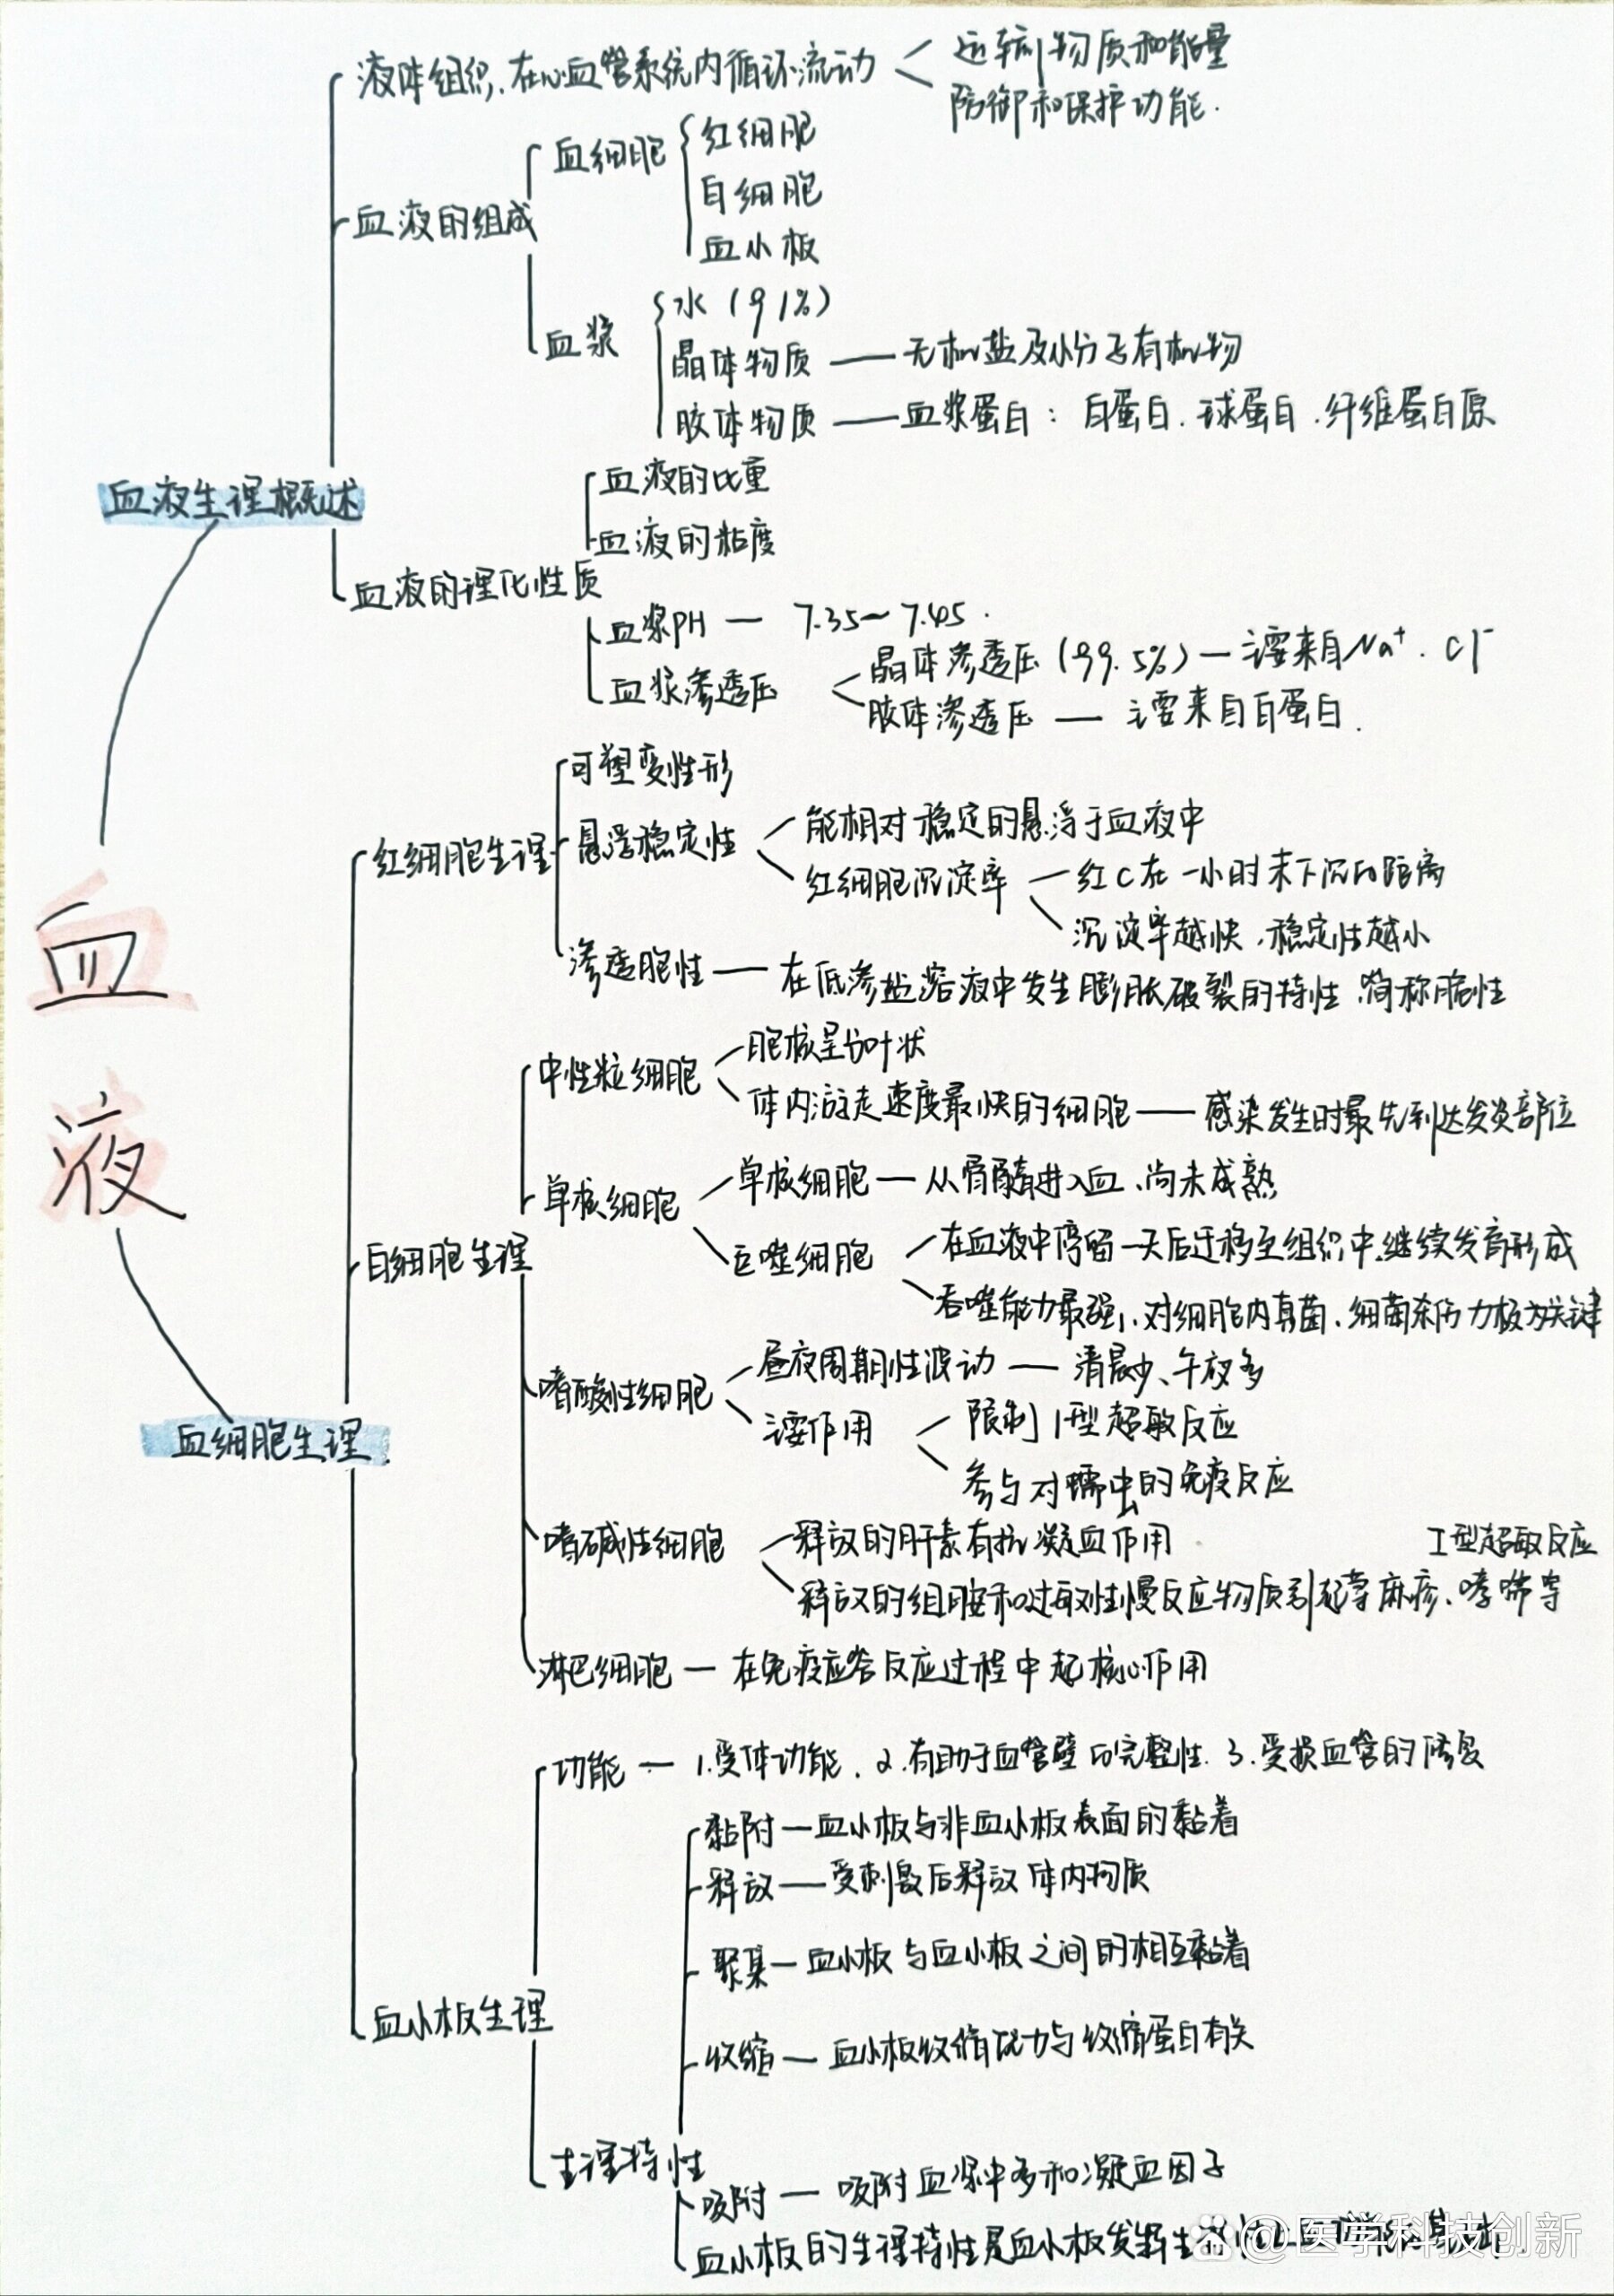 液体组织.在心血管系统内循环流动
运输物质和能量
防御和保护功能.
血液的组成
血细胞
红细胞
白细胞
血小板
血浆
水(91%)
晶体物质 — 无机盐及小分子有机物
胶体物质 — 血浆蛋白: 白蛋白.球蛋白.纤维蛋白原
血液生理概述
血液的理化性质
血液的比重
血液的粘度
血浆PH — 7.35~7.45.
血浆渗透压
晶体渗透压(99.5%)—主要来自Na⁺.Cl⁻
胶体渗透压 — 主要来自白蛋白.
血液
血细胞生理.
红细胞生理
可塑变性形
悬浮稳定性
能相对稳定的悬浮于血液中
红细胞沉淀率
红C在一小时末下沉的距离
沉淀率越快.稳定性越小
渗透脆性 — 在低渗盐溶液中发生膨胀破裂的特性.简称脆性
白细胞生理
中性粒细胞
胞核呈分叶状
体内游走速度最快的细胞 — 感染发生时最先到达发炎部位
单核细胞
单核细胞 — 从骨髓进入血、尚未成熟
巨噬细胞
在血液中停留一天后迁移至组织中.继续发育形成
吞噬能力最强.对细胞内真菌、细菌杀伤力极为关键
嗜酸性细胞
昼夜周期性波动 — 清晨少、午夜多
主要作用
限制I型超敏反应
参与对蠕虫的免疫反应
嗜碱性细胞
释放的肝素有抗凝血作用
I型超敏反应
释放的组胺和过敏性慢反应物质引起荨麻疹、哮喘等
淋巴细胞 — 在免疫应答反应过程中起核心作用
血小板生理
功能 — 1.受体功能. 2.有助于血管壁的完整性. 3.受损血管的修复
生理特性
黏附—血小板与非血小板表面的黏着
释放—受刺激后释放体内物质
聚集—血小板与血小板之间的相互黏着
收缩—血小板收缩能力与收缩蛋白有关
吸附 — 吸附血浆中多和凝血因子
血小板的生理特性是血小板发挥生
@医学科技创新